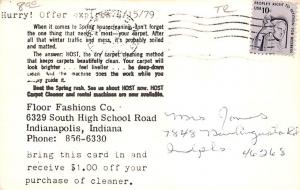 Hurry! Offer expires 6/15/79
When it comes to Spring housecleaning, don't forget
the one thing that needs it most—your carpet. After
all that winter traffic and mess, it's probably soiled
and matted.
The answer: HOST, the dry carpet cleaning method
that keeps carpets beautifully clean. Your carpet will
look brighter . . . feel livelier . . . be deep-down
clean. And the machine does the work while you
guide it.
Beat the Spring rush. See us about HOST now. HOST
Carpet Cleaner and rental machines are now available.
Floor Fashions Co.
6329 South High School Road
Indianapolis, Indiana
Phone: 856-6330
Bring this card in and
receive $1.00 off your
purchase of cleaner.
Mrs Jones
7843
Indpls
46268